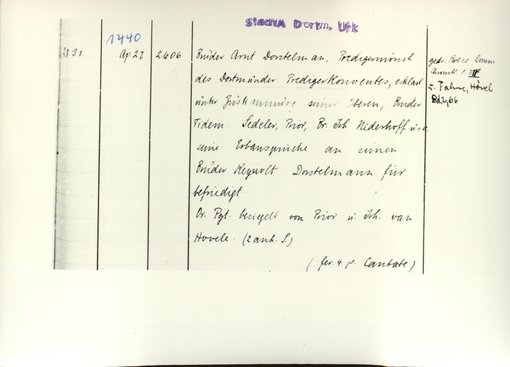 StadtA Dortm. Urk
1440
Ap 27
2606
Bruder Arnt Dorstelman, Predigermönch
des Dortmunder Predigerkonventes, erklärt
unter Zustimmung seiner Oberen, Bruder
Tidem. Sedeler, Prior, Br. Joh. Niederhoff u. a.
seine Erbansprüche an seinen
Bruder Reynolt Dorstelmann für
befriedigt.
Or. Pgt. besiegelt von Prior u. Joh. van
Hovele. (2 anh. S)
(fer. 4 p. Cantate)
gedr.
Chronik
v. Fahne, Hövel